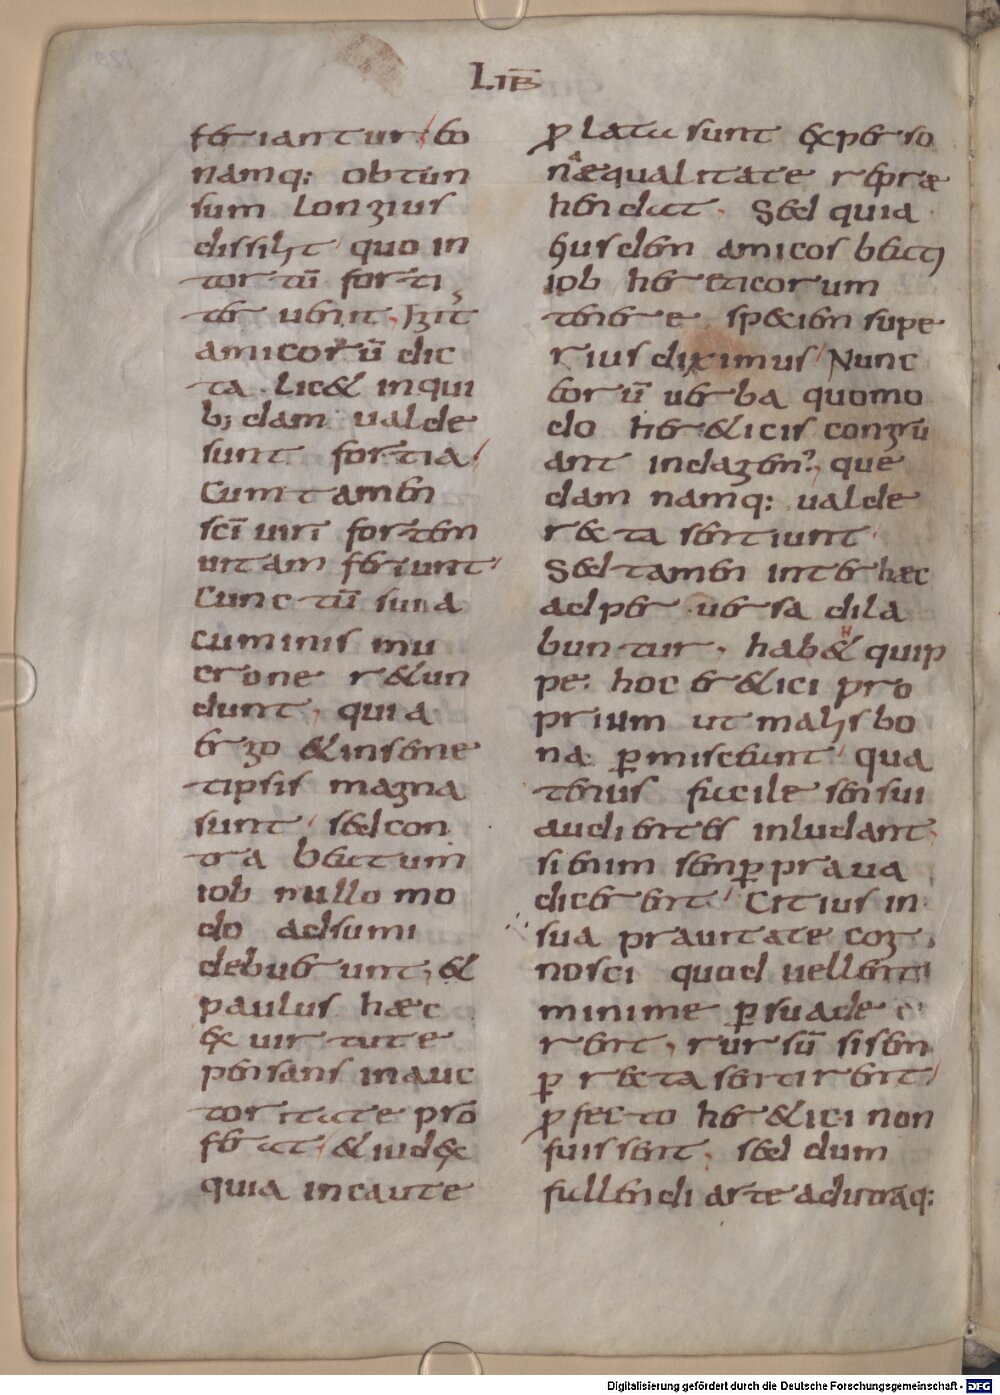 LIB̅
feriantur eo
namq: obtun
sum longius
dissilit quo in
tortū forti
ter uenit, Igit
amicorū dic
ta lic& inqui
b; dam ualde
sunt fortia
Cum tamen
sc̄i uiri fortem
uitam feriunt
Cunctū sui a
cuminis mu
crone r&un
dunt, quia
ergo & in seme
tipsis magna
sunt sed con
tra beatum
iob nullo mo
do adsumi
debuerunt, &
paulus haec
ex uirtute
pensans in auc
toritate prō
ferat & iudex
quia incaute
ꝓlata sunt ex perso
næ qualitate repræ
hendat. Sed quia
huiusdem amicos beati
iob hereticorum
tenere speciem supe
rius diximus Nunc
eorū uerba quomo
do her&icis congrū
ant indagem?, que
dam namq: ualde
recta sentiunt
Sed tamen inter hæc
ad peruersa dila
buntur, hab& quip
pe: hoc er&ici pro
prium ut malis bo
na ꝑmisceunt qua
tenus facile sensui
audientes inludant
si enim senꝑ praua
dicerent Citius in
sua prauitate cog
nosci quod uellent
minime ꝑsuade
rent, rursū si sem
ꝑ recta sentirent
ꝓfecto her&ici non
fuissent, sed dum
fallendi arte ad utrāq:
Digitalisierung gefördert durch die Deutsche Forschungsgemeinschaft - DFG